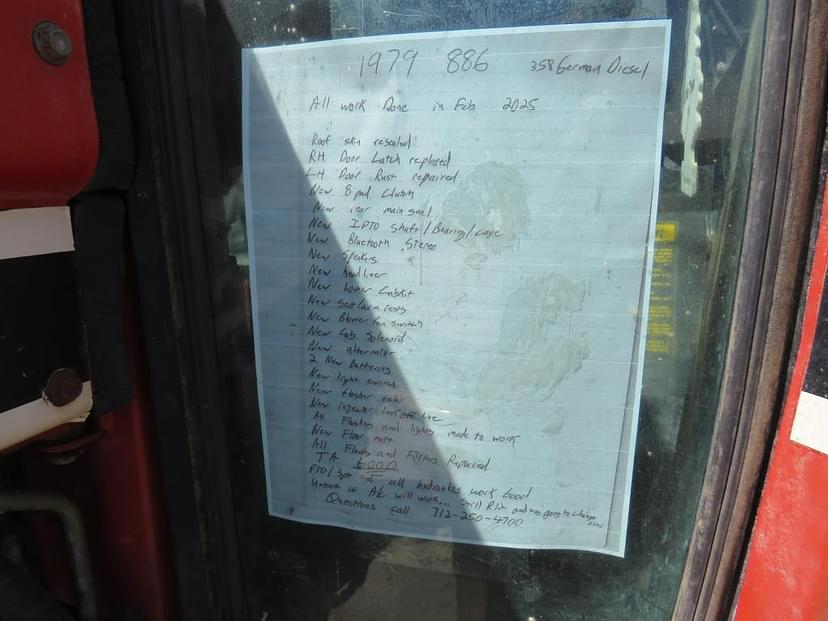 1979 886 358 German Diesel
All work Done in Feb 2025
Roof skin resealed
RH Door Latch replaced
LH Door Rust repaired
New 8 pad Clutch
New rear main seal
New IPTO shaft/Bearing/cage
New Bluetooth Stereo
New Speakers
New headliner
New Lower Cabkit
New seat/arm rests
New Blower fan switch
New Cab Solenoid
New alternator
2 New Batteries
New light switch
New flasher relay
New injector leak off line
All Flashers and lights made to work
New Floor mat
All Fluids and Filters Replaced
TA GOOD
PTO/3pt all hydraulics work Good
Unsure if AC will work... Still R12 and was going to change over
Questions Call 712-250-4700